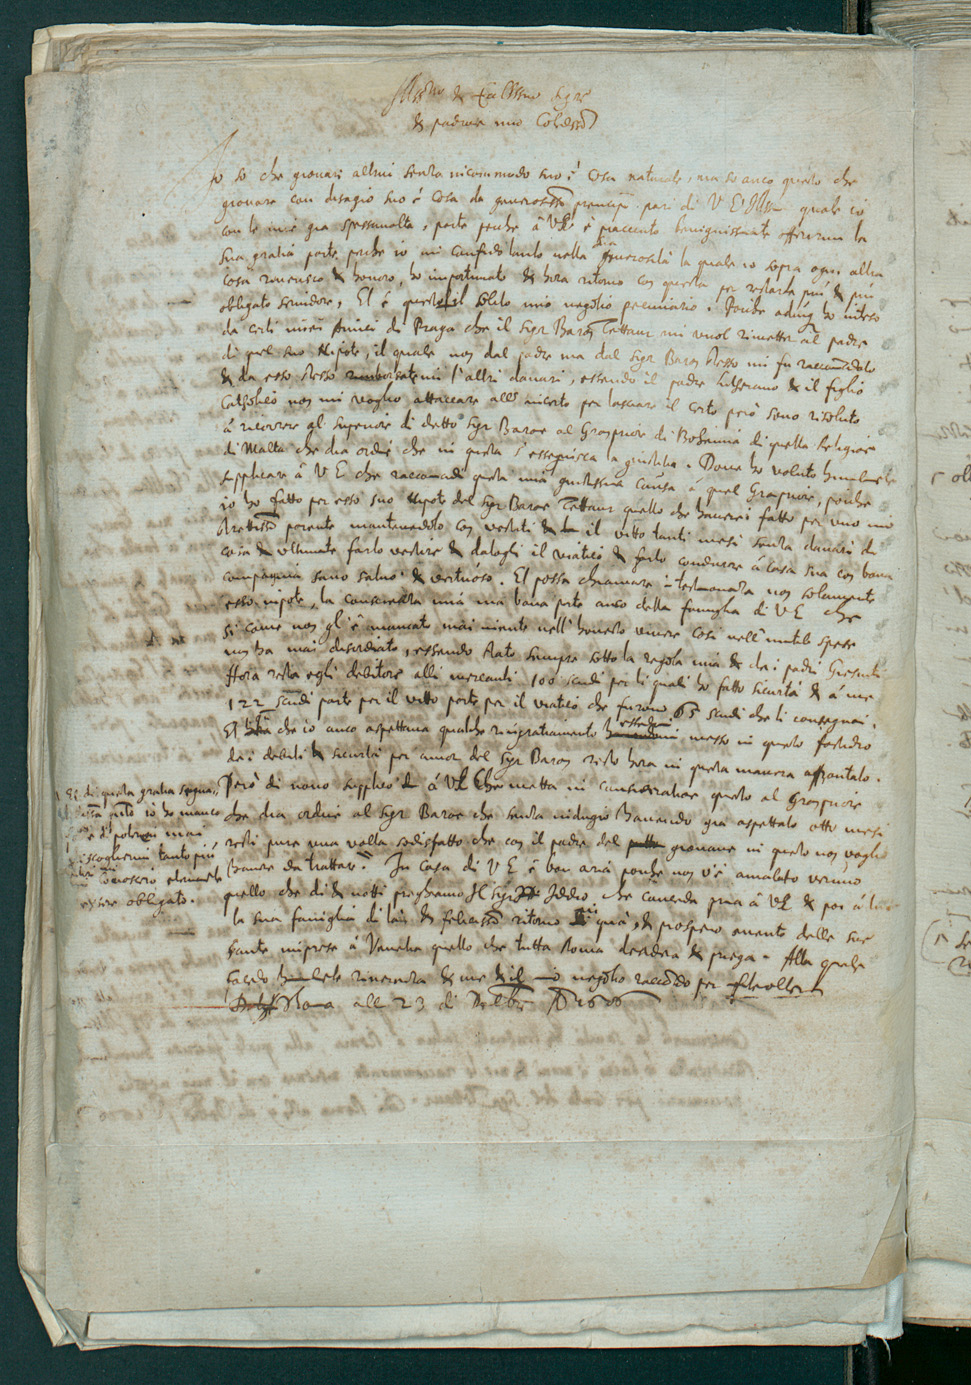 Illmo & Eccllmo Sigre
& padrone mio Colmo
Io so che giouari altrui senza incommodo suo è cosa naturale, ma so anco questo che
giouare con disagio suo è cosa da generosissmo principi pari di V E Illma quale io
con le mie gia spesseuolte, parte perche à VE è piacciuto benignissmte offerirmi la
sua gratia parte perche io mi confido tanto nella generosità la quale io sopra ogni altra
cosa riuerisco & honoro, ho importunato & hora ritorno con questa per restarle più & più
obligato seruidore, Et è questo il solito mio negotio pecuniario. Poiche adunq ho inteso
da certi miei Amici di Praga che il Sigr Baron Tettaur mi vuol rimetter al padre
di quel suo Nipote, il quale non dal padre ma dal Sigr Baron stesso mi fu raccomãdato
& da esso stesso rimborsatemi l'altri danari, essendo il padre Lutherano & il figlio
Catholico non mi voglio attaccare all' incerto per lasciare il certo però sono risoluto
à ricorrere al superiore di detto Sigr Barone al Granprior di Bohemia di quella Religione
di Malta che dia ordine che in questa s' esseguisca la giustitia. Doue ho voluto humilmte
supplicare à V E che raccomãdi questa mia giustissima causa à quel Granpriore, poiche
io ho fatto per esso suo Nipote del Sigr Barone Tettaur quello che hauerei fatto per uno mio
strettissmo parente mantenendolo con vestiti & il vitto tanti mesi senza danari di
casa & vltimate farlo vestire & datogli il viatico & farlo condurre à casa sua con bona
compagnia sano saluo & vertuoso. Et possa chiamare in testimonanza non solamente
esso nipote, la conscienza mia ma bona parte anco della famiglia di V E che
si come non gl' è mancato mai niente nell' honesto viuere cosi nell' inutile spese
non ha mai disordinato, essendo stato sempre sotto la regola mia & dei padri Giesuiti
Hora resta egli debitore alli mercanti 100 scudi per li quali ho fatto sicurtà & à me
122 scudi parte per il vitto parte per il viatico che furono 65 scudi che li consegnai.
Et che io anco aspettaua qualche ringratiamento essendomi messo in questo fastidio
dei debiti & sicurtà per amor del Sigr Baron resto hora in questa maniera affrontato.
Però di nouo supplico à VE che metta in consideratione questo al Granpriore
che dia ordine al Sigr Baron che senza indugio hauendo gia aspettato otto mesi
resti pure una volta sodisfatto che con il padre del giouane in questo non voglio
hauere da trattare. In casa di V E è bon aria poiche non v'è amalato veruno
quello che di & notti preghiamo Il Sigr Iddio che conceda pria à VE & poi à tutta
la sua famiglia di là & felicissmo ritorno quà, & prospero euento delle sue
sante imprese à Venetia quello che tutta Roma desidera & prega. Alla quale
facendo humilmte riuerenza & me & il mio negotio raccõmdo per
Roma all 23 di Xbre AD 1606
di questa gratia segna-
io ho manco
& potrei mai
tanto più
conoscerò eternamte
essere obligato.